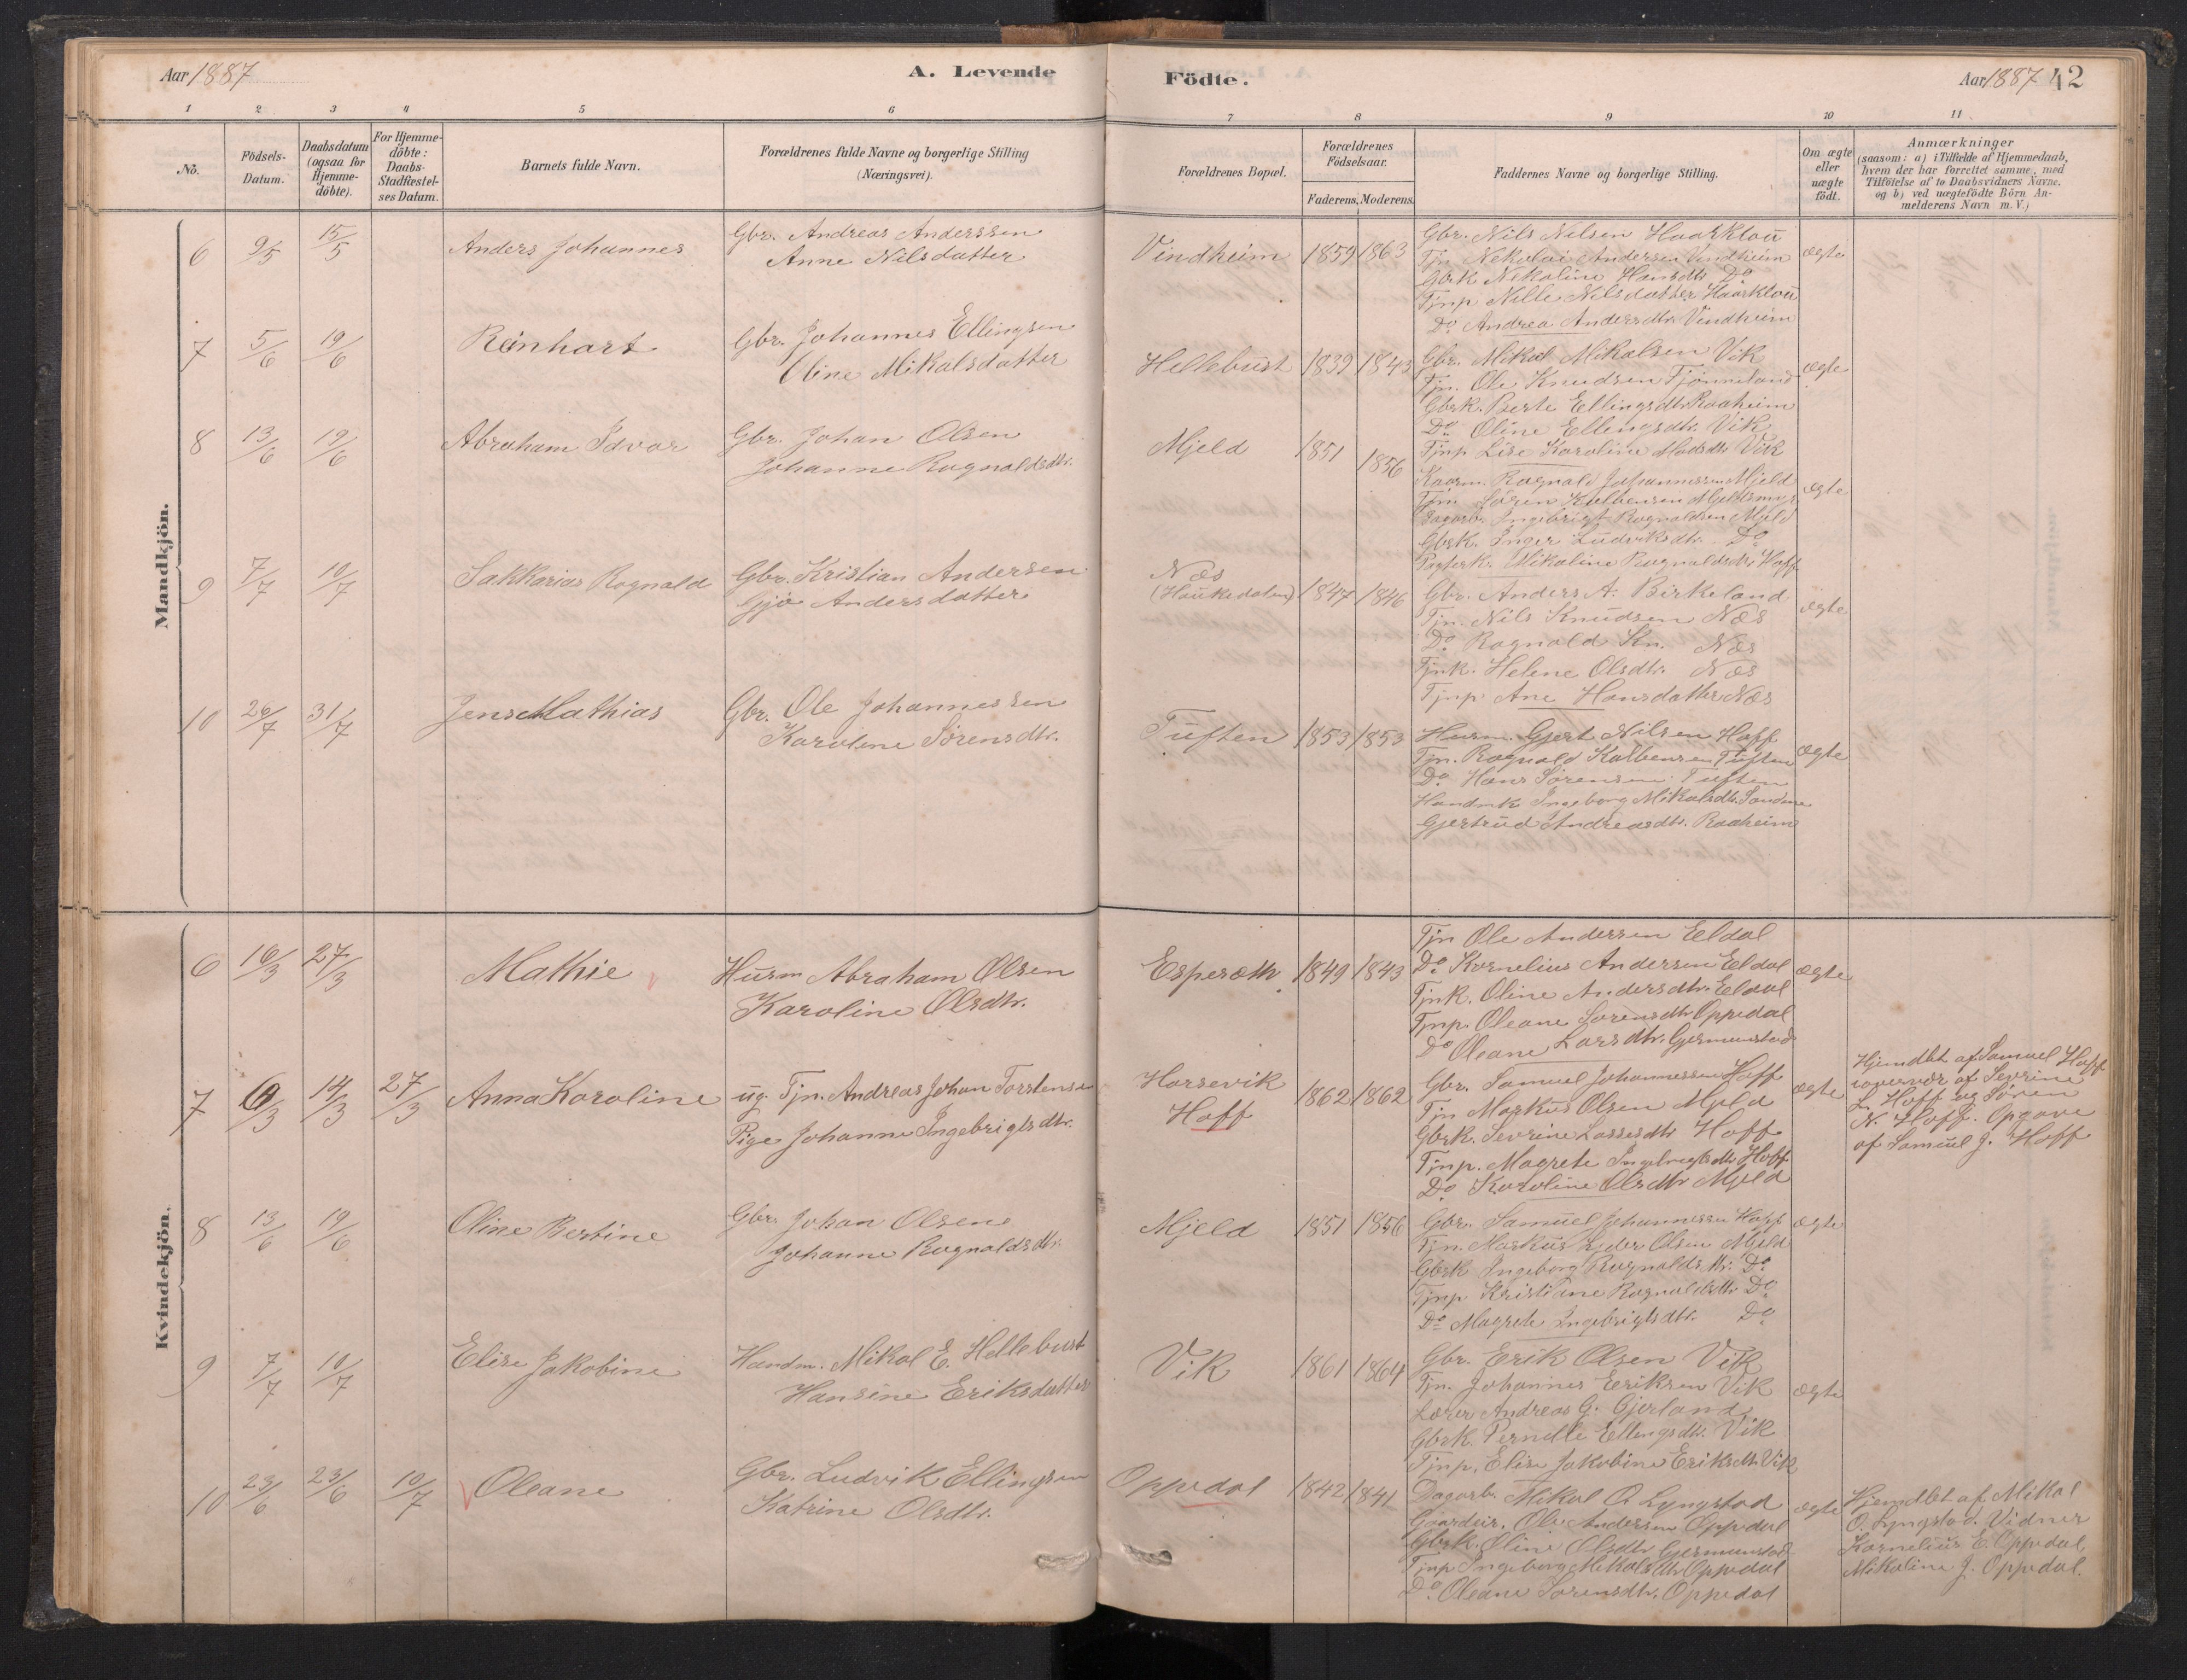 Aar 1887
A. Levende
Födte.
Aar 1887
42
1 2 3 4 5 6 7 8 9 10 11
No.
Födsels-
Datum.
Daabsdatum
(ogsaa for
Hjemme-
döbte).
For Hjemme-
döbte:
Daabs-
Stadfæstel-
ses Datum.
Barnets fulde Navn.
Forældrenes fulde Navne og borgerlige Stilling
(Næringsvei).
Forældrenes Bopæl.
Forældrenes
Födselsaar.
Faderens. Moderens.
Faddernes Navne og borgerlige Stilling.
Om ægte
eller
uægte
födt.
Anmærkninger
(saasom: a) i Tilfælde af Hjemmedaab,
hvem der har forrettet samme, med
Tilföielse af to Daabsvidners Navne,
og b) ved uægtefödte Börn An-
melderens Navn m. V.)
Mandkjön.
6 9/5 15/5 Anders Johannes
Gbr. Andreas Anderssen
Anne Nilsdatter
Vindheim 1859 1863
Gbr. Nils Nilsen Haarklou
Tjn Nekolai Andersen Vindheim
Gbrk Nikoline Hansdtr Do
Tjnp Nille Nilsdatter Haarklou
Do Andrea Andersdtr. Vindheim
ægte
7 5/6 19/6 Reinhart
Gbr. Johannes Ellingsen
Oline Mikalsdatter
Hellebust 1839 1843
Gbr. Mikal Mikalsen Vik
Tjn. Ole Knudsen Tjønneland
Gbrk. Berte Ellingsdtr. Raaheim
Do Oline Ellingsdtr. Vik
Tjnp Lise Karoline Madsdtr Vik
ægte
8 13/6 19/6 Abraham Idvar
Gbr. Johan Olsen
Johanne Ragnaldsdtr.
Mjeld 1851 1856
Kaarm. Ragnald Johannessen Mjeld
Tjn Søren Kolbensen Mjeldsmyr
Dagarb. Ingebrigt Ragnaldsen Mjeld
Gbrk. Inger Ludviksdtr. Do
Pagterk. Mikaline Ragnaldsdtr Hoff
ægte
9 7/7 10/7 Sakkarias Ragnald
Gbr. Kristian Andersen
Gjø Andersdatter
Næs
(Haukedalen) 1847 1846
Gbr. Anders A. Birkeland
Tjn. Nils Knudsen Næs
Do Ragnald Kn. Næs
Tjnk. Helene Olsdtr. Næs
Tjnp Ane Hansdatter Næs
ægte
10 26/7 31/7 Jens Mathias
Gbr. Ole Johannessen
Karoline Sørensdtr.
Tuften 1853 1853
Husm. Gjert Nilsen Hoff
Tjn. Ragnald Kolbensen Tuften
Do Hans Sørensen Tuften
Handmk Ingeborg Mikalsdtr. Sandnæ
Gjertrud Andreasdtr. Raaheim
ægte
Kvindekjön.
6 16/3 27/3 Mathie
Husm Abraham Olsen
Karoline Olsdtr.
Espesæth 1849 1843
Tjn Ole Andersen Eldal
Do Kornelius Andersen Eldal
Tjnk. Oline Andersdtr. Eldal
Tjnp. Oleane Sørensdtr Oppedal
Do Oleane Larsdtr. Gjermunstad
ægte
7 6/3 14/3 27/3 Anna Karoline
ug. Tjn. Andreas Johan Torstensen
Pige Johanne Ingebrigtsdtr.
Horsevik
Hoff
1862 1862
Gbr. Samuel Johannessen Hoff
Tjn Markus Olsen Mjeld
Gbrk. Severine Lassesdtr Hoff
Tjnp. Magrete Ingebrigtsdtr Hoff
Do Karoline Olsdtr Mjeld
ægte
Hjemdbt af Samuel Hoff
iovervær af Severine
L. Hoff og Søren
N. Hoff. Opgave
af Samuel J. Hoff
8 13/6 19/6 Oline Bertine
Gbr. Johan Olsen
Johanne Ragnaldsdtr.
Mjeld 1851 1856
Gbr. Samuel Johannessen Hoff
Tjn. Markus Olsen Mjeld
Gbrk Ingeborg Ragnaldsdtr. Do
Tjnp Kristiane Ragnaldsdtr Do
Do Magrete Ingebrigtsdtr. Do
ægte
9 7/7 10/7 Elise Jakobine
Handm. Mikal E. Hellebust
Hansine Eriksdatter
Vik 1861 1864
Gbr. Erik Olsen Vik
Tjn. Johannes Eriksen Vik
Lærer Andreas G. Gjerland
Gbrk. Pernille Ellingsdtr. Vik
Tjnp. Elise Jakobine Eriksdtr Vik
ægte
10 23/6 23/6 10/7 Oleane
Gbr. Ludvik Ellingsen
Katrine Olsdtr.
Oppedal 1842 1841
Dagarb. Mikal O. Lyngstad
Gaardeir. Ole Andersen Oppedal
Gbrk. Oline Olsdtr Gjermunstad
Tjnp Ingeborg Mikalsdtr Oppedal
Do. Oleane Sørensdtr. Oppedal
ægte
Hjemdbt af Mikal
O. Lyngstad. Vidner
Kornelius E. Oppedal,
Mikaline J. Oppedal.